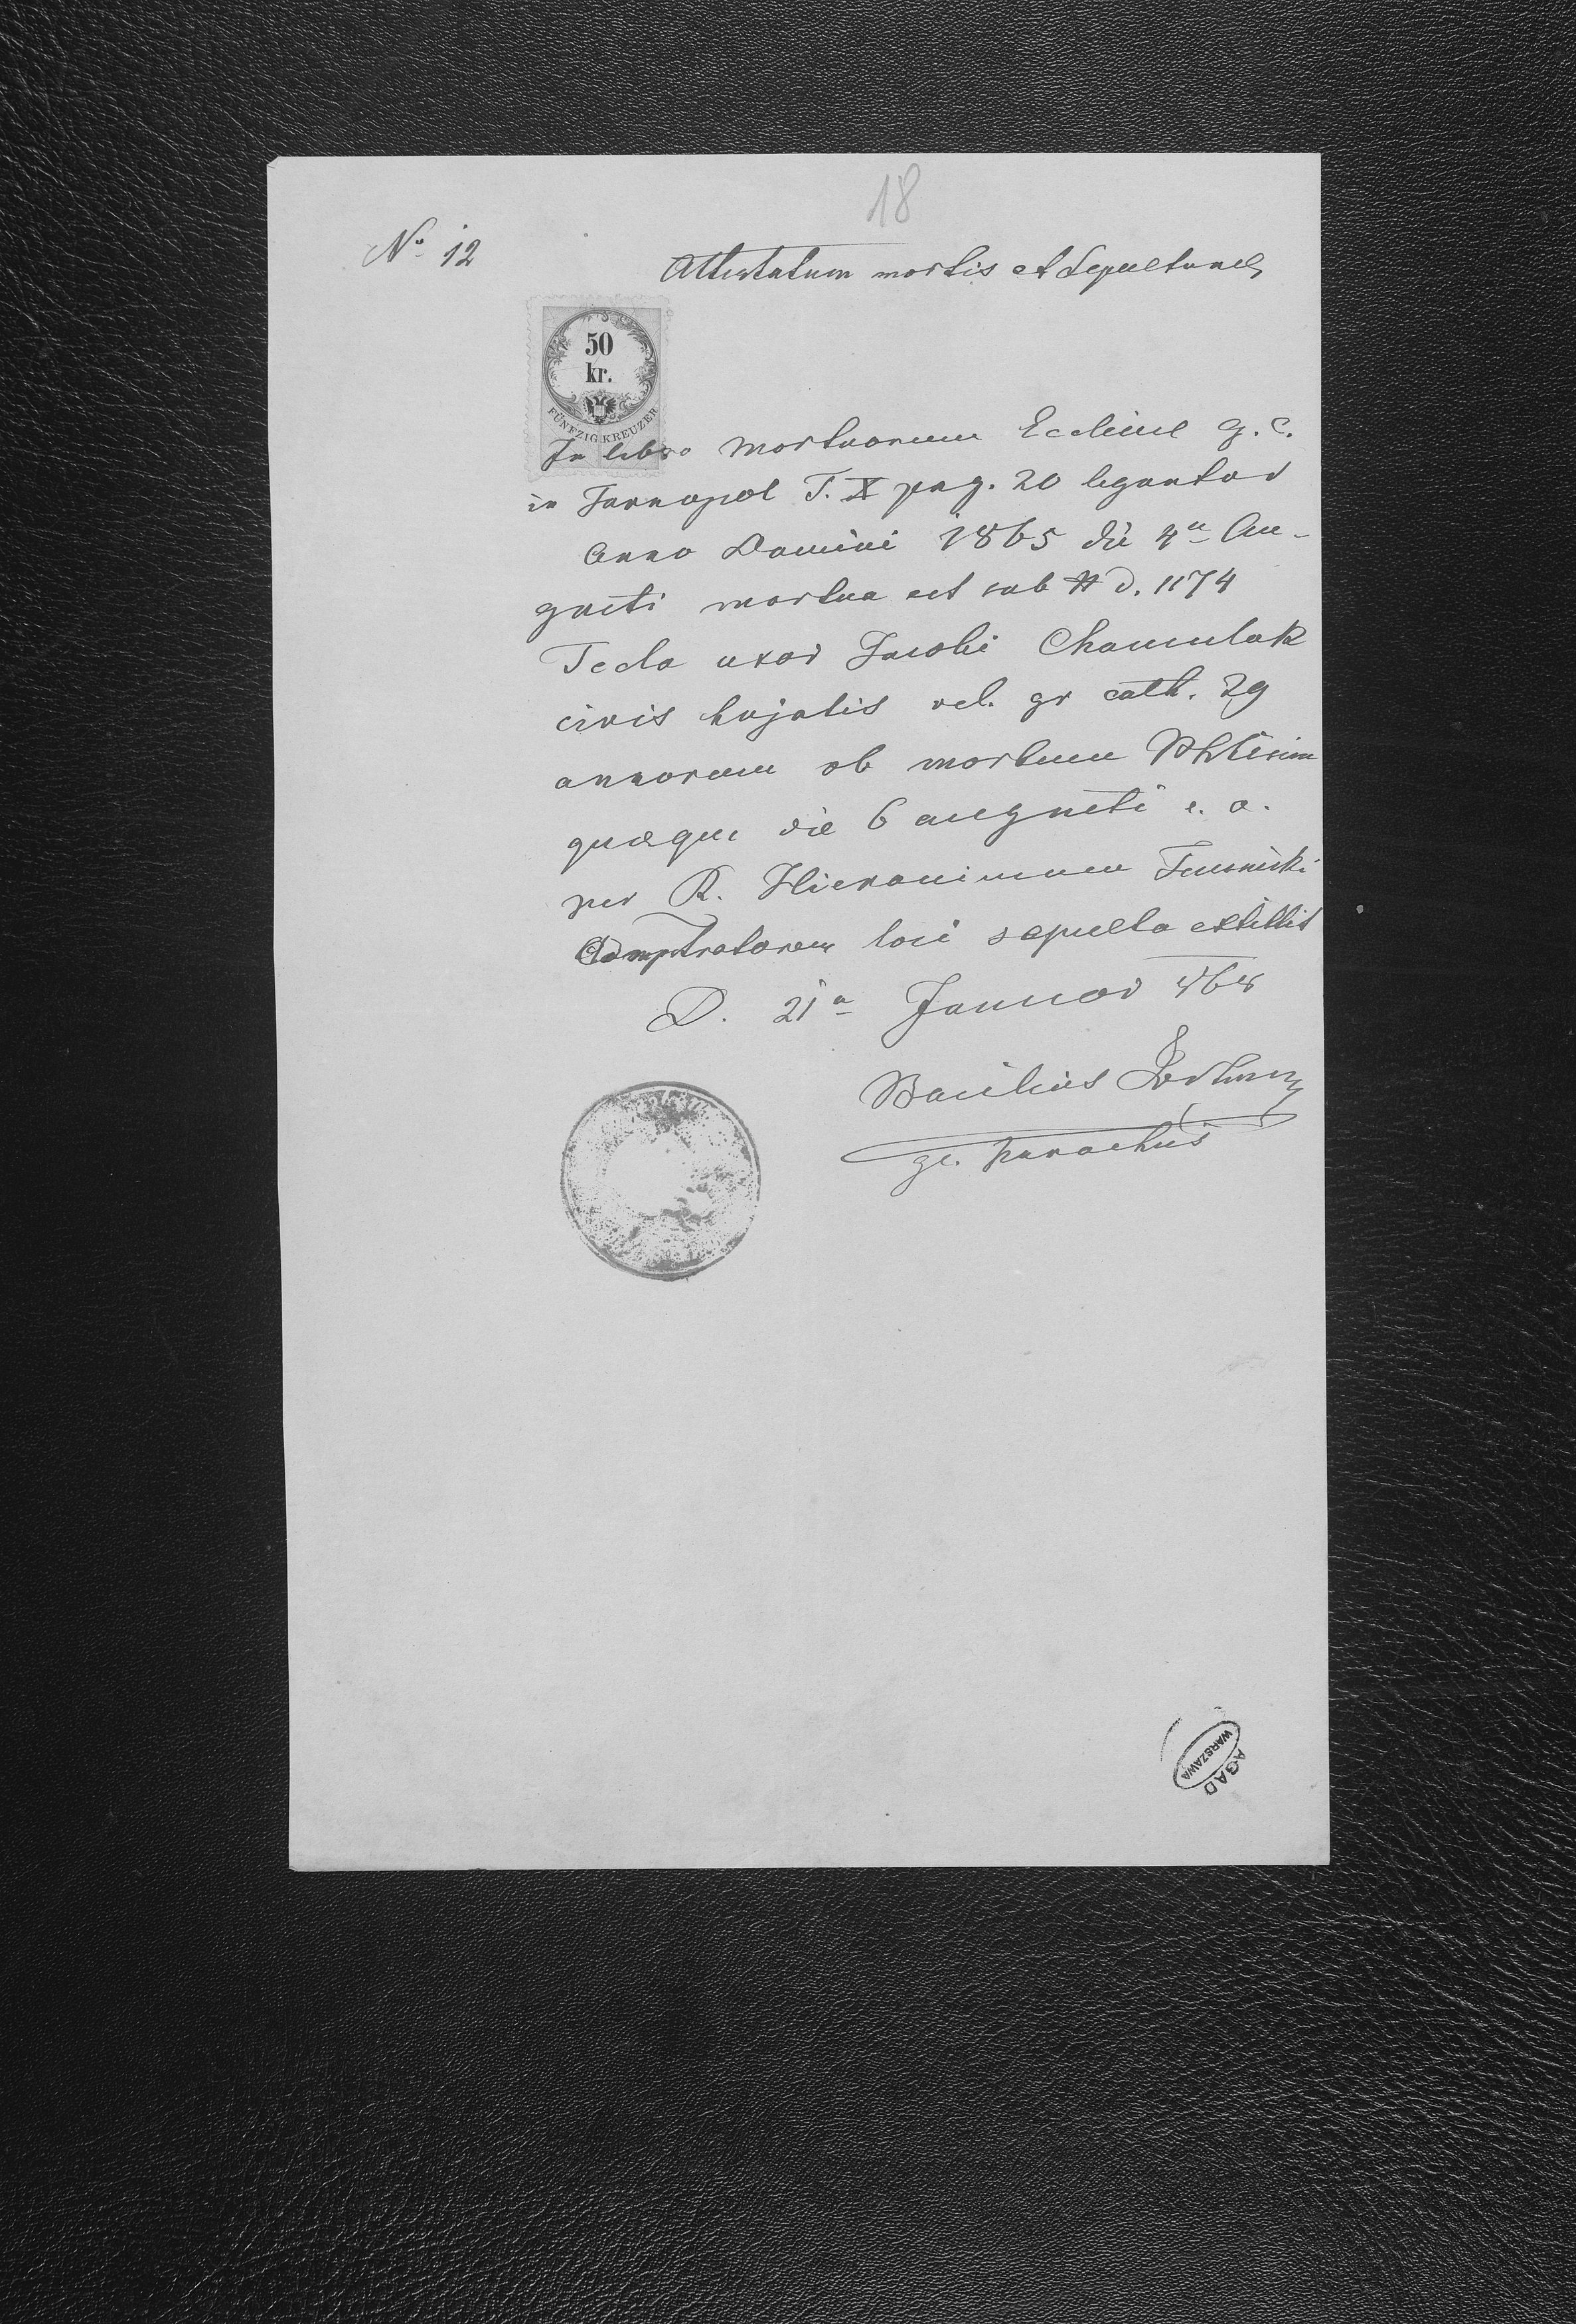 18
No 12
Attestatum mortis et Sepulturae
50
kr.
FÜNFZIG KREUZER
In libro Mortuorum Eccliae g. c.
in Tarnopol T. X pag. 20 leguntur
Anno Domini 1865 die 4a Au-
gusti mortua est sub # d. 1174
Tecla uxor Jacobi Chamulak
civis hujatis rel. gr cath. 29
annorum ob morbum Phtisim
quaeque die 6 augusti e. a.
per R. Hieronimum
Admstratorem loci sepulta extitit
D. 21a Januar 868
Basilius
gc. parochus
AGAD
WARSZAWA